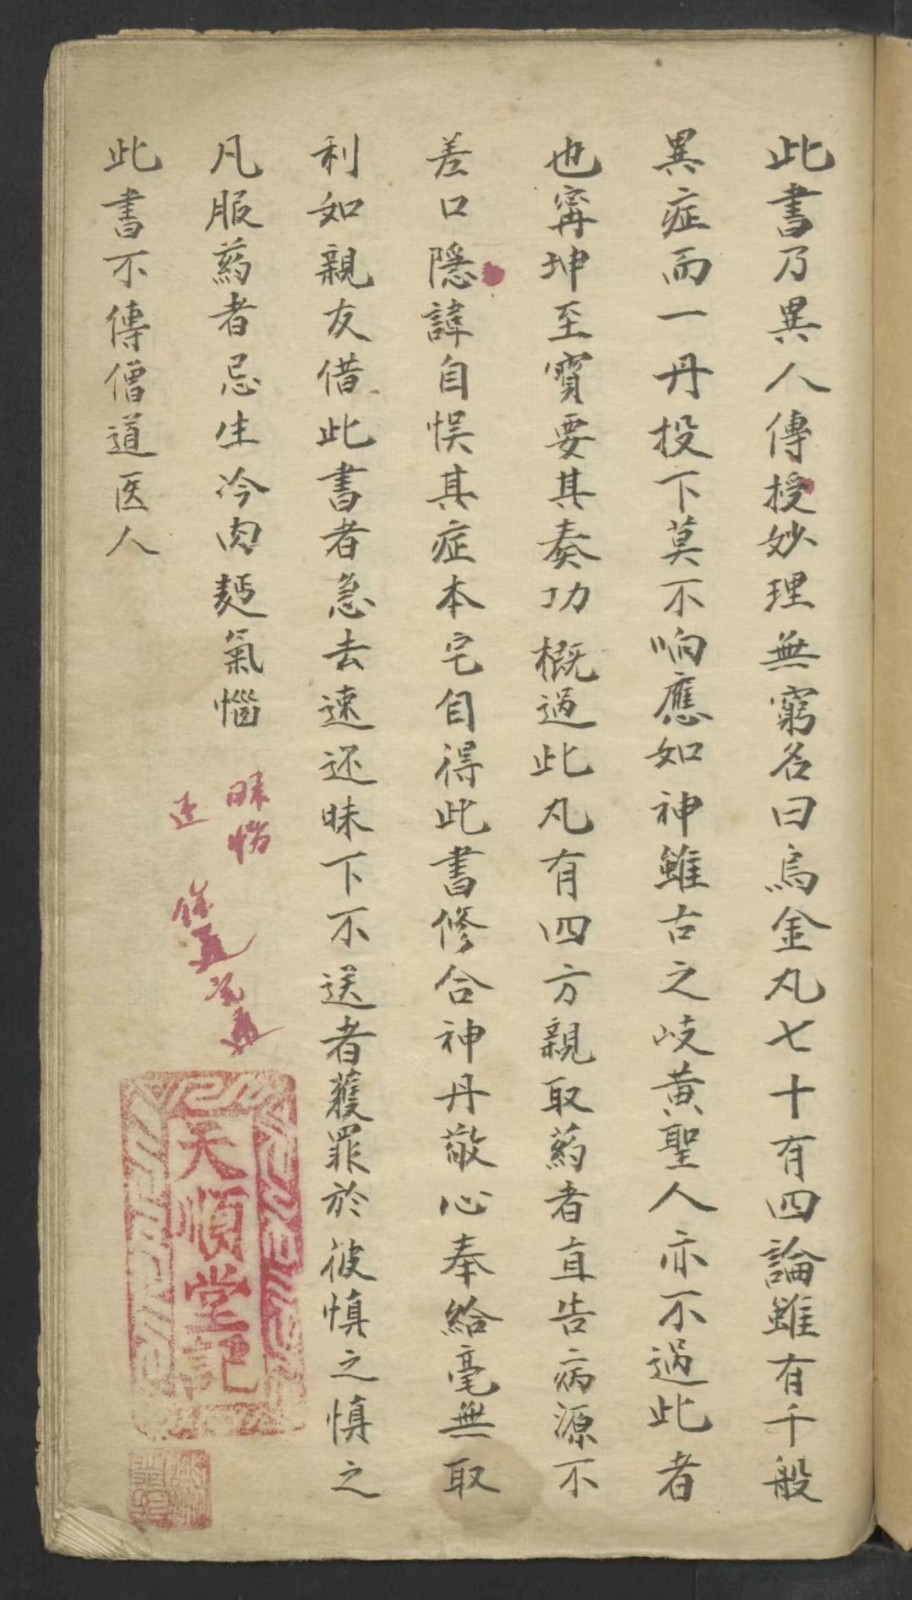 此書乃異人傳授妙理無窮名曰烏金丸七十有四論雖有千般
異症而一丹投下莫不响應如神雖古之岐黃聖人亦不過此者
也寗坤至寳要其奏功概過此丸有四方親取药者直告病源不
差口隱諱自悮其症本宅自得此書修合神丹敬心奉給毫無取
利如親友借此書者急去速还昧下不送者获罪於彼慎之慎之
凡服药者忌生冷肉麺氣惱
此書不傳僧道医人
天順堂記